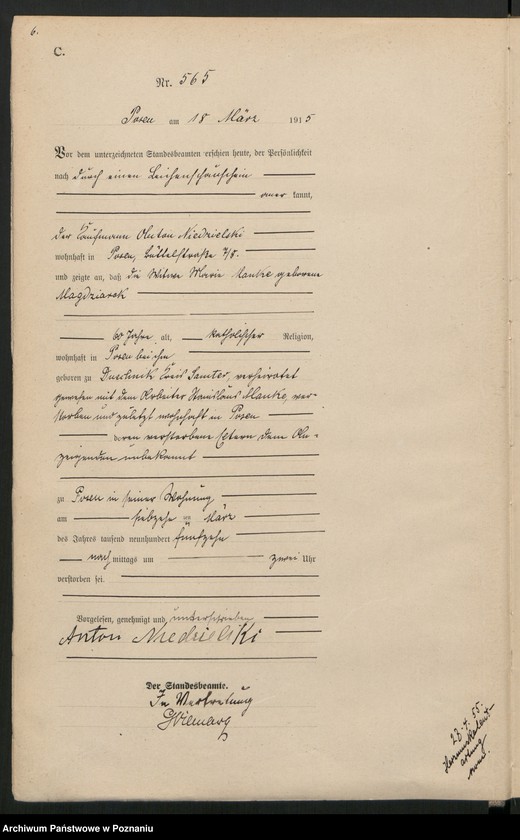 6.
C.
Nr. 565
Posen am 18 März 1915
Vor dem unterzeichneten Standesbeamten erschien heute, der Persönlichkeit
nach durch einen Leichenschauschein
aner kannt,
der Kaufmann Anton Niedzielski
wohnhaft in Posen, Büttelstraße 7/8.
und zeigte an, daß die Witwe Marie Manke geborene
Magdziarek
60 Jahre alt, katholischer Religion,
wohnhaft in Posen bei ihm
geboren zu Kreis Samter, verheiratet
gewesen mit dem Arbeiter Stanislaus Manke, ver-
storben und zuletzt wohnhaft in Posen
deren verstorbene Eltern dem An-
zeigenden unbekannt
zu Posen in seiner Wohnung
am siebzehn ten März
des Jahres tausend neunhundert fünfzehn
nach mittags um zwei Uhr
verstorben sei.
Vorgelesen, genehmigt und unterschrieben
Anton Niedzielski
Der Standesbeamte.
In Vertretung
23.4.55.
Archiwum Państwowe w Poznaniu